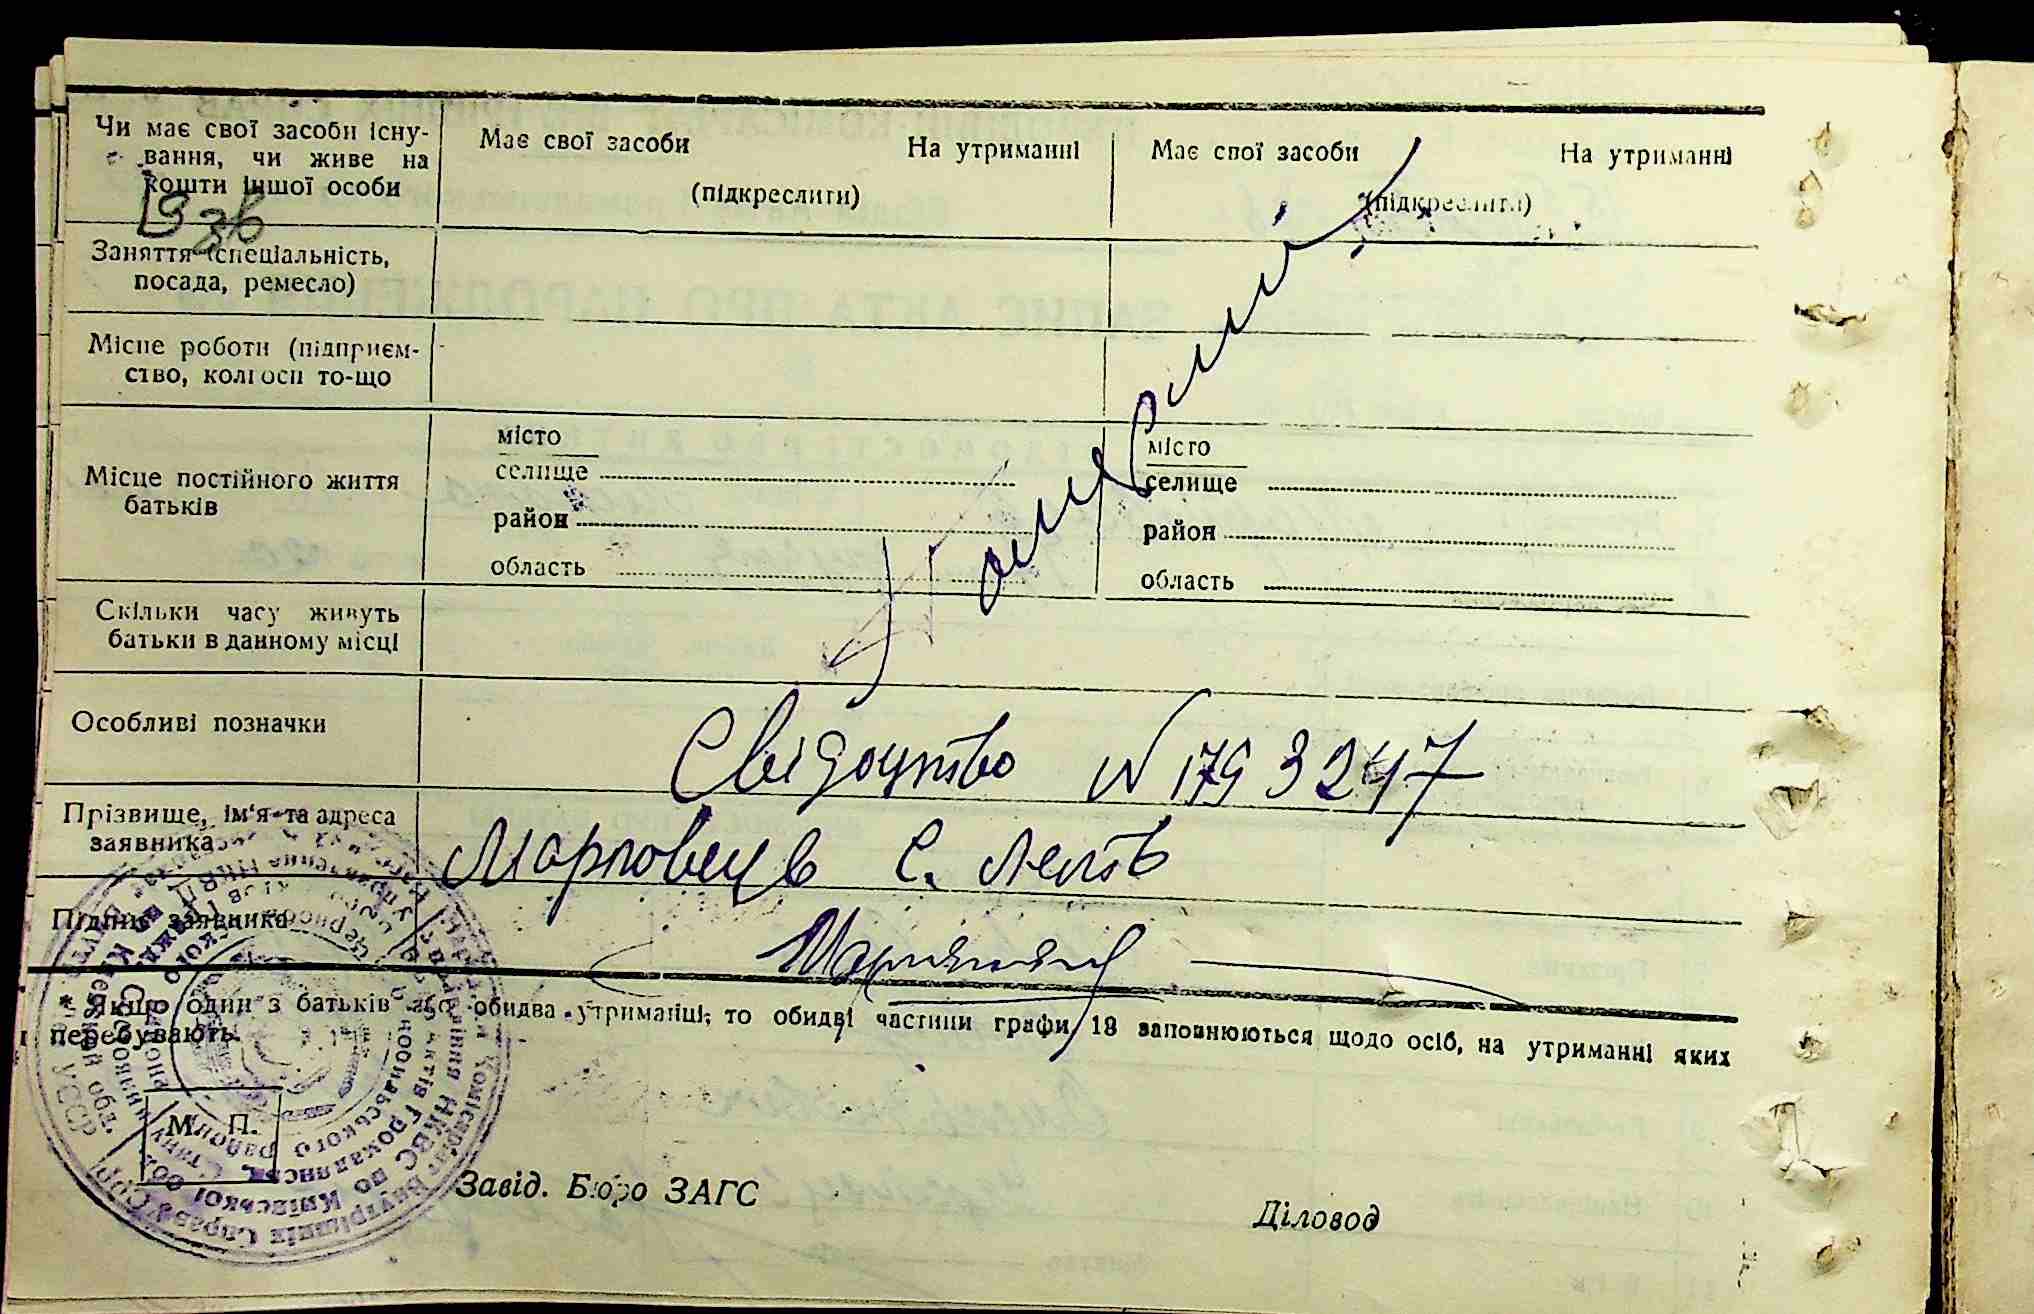 Чи має свої засоби існу-
вання, чи живе на
кошти іншої особи
Має свої засоби На утриманні
(підкреслити)
Має свої засоби На утриманні
(підкреслити)
Заняття (спеціальність,
посада, ремесло)
Місце роботи (підприєм-
ство, колгосп то-що
Місце постійного життя
батьків
місто
селище
район
область
місто
селище
район
область
Скільки часу живуть
батьки в данному місці
Особливі позначки
Свідоцтво N 1793247
Прізвище, ім'я та адреса
заявника
с.
Підпис заявника
* Якщо один з батьків або обидва утриманці, то обидві частини графи 18 заповнюються щодо осіб, на утриманні яких
перебувають.
М. П.
Завід. Бюро ЗАГС
Діловод